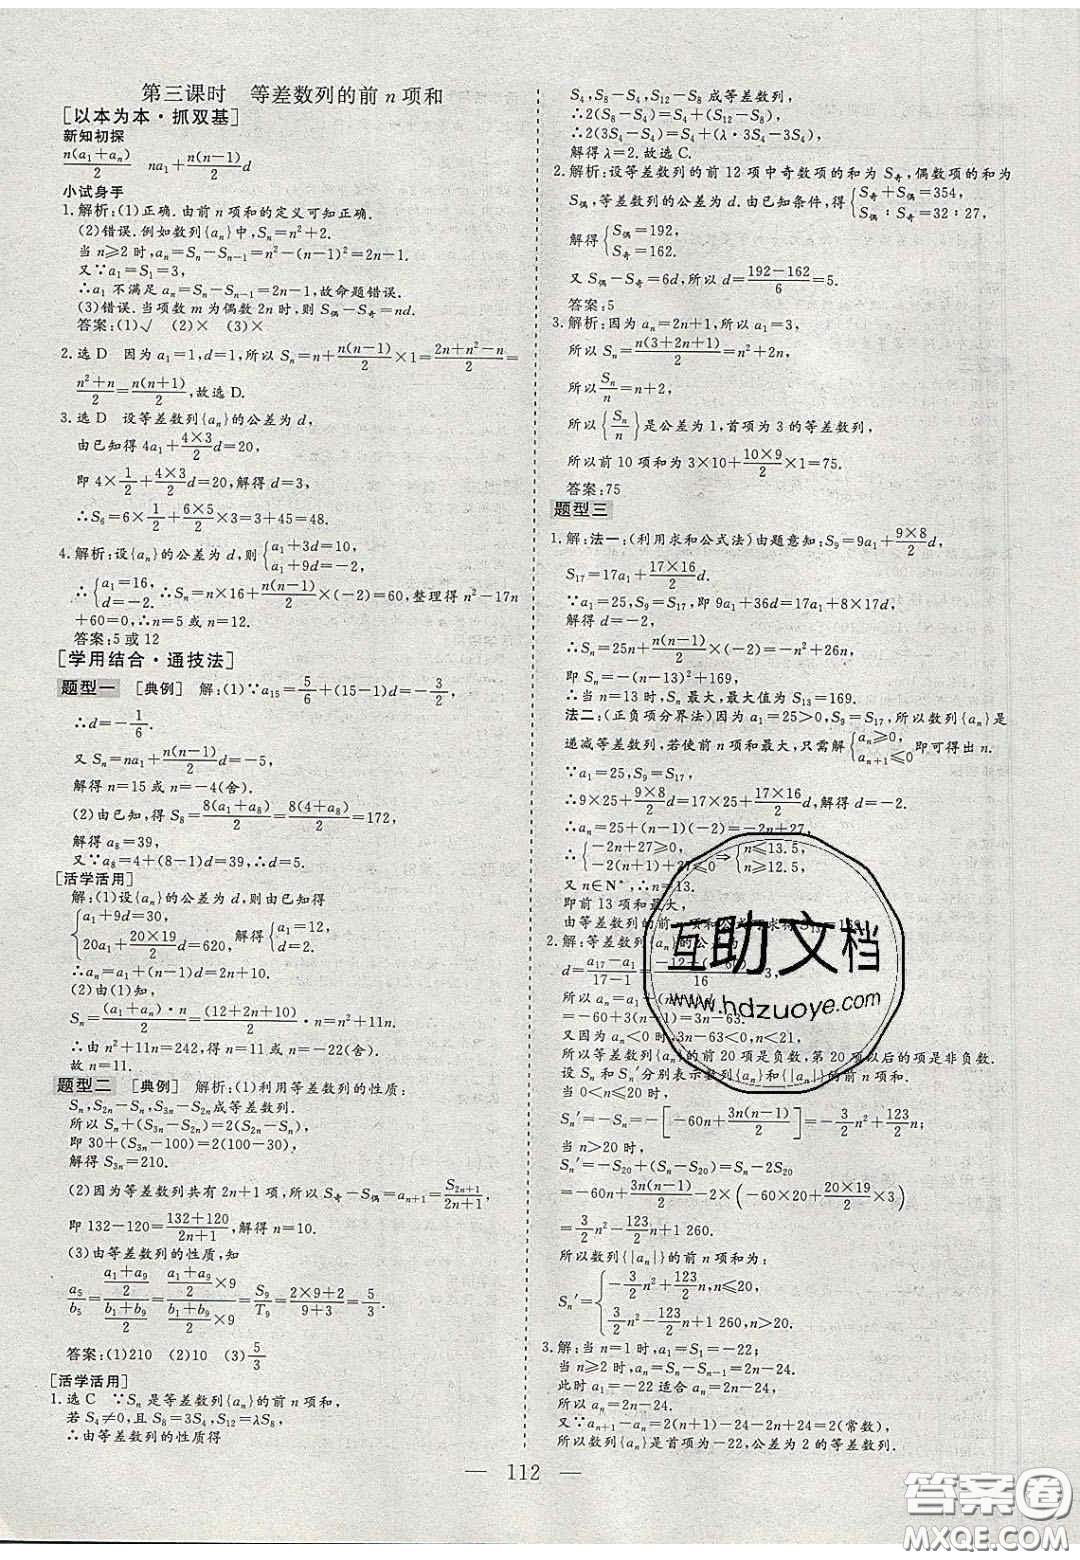 第三课时　等差数列的前n项和
[以本为本·抓双基]
新知初探
n(a₁+aₙ)/2　na₁+n(n−1)/2 d
小试身手
1.解析:(1)正确.由前n项和的定义可知正确.
(2)错误.例如数列{aₙ}中,Sₙ=n²+2.
当n≥2时,aₙ=Sₙ−Sₙ₋₁=n²−(n−1)²=2n−1,
又∵a₁=S₁=3,
∴a₁不满足aₙ=Sₙ−Sₙ₋₁=2n−1,故命题错误.
(3)错误.当项数m为偶数2n时,则S偶−S奇=nd.
答案:(1)√　(2)×　(3)×
2.选D　因为a₁=1,d=1,所以Sₙ=n+n(n−1)/2×1=(2n+n²−n)/2=
(n²+n)/2=n(n+1)/2,故选D.
3.选D　设等差数列{aₙ}的公差为d,
由已知得4a₁+(4×3)/2 d=20,
即4×1/2+(4×3)/2 d=20,解得d=3,
∴S₆=6×1/2+(6×5)/2×3=3+45=48.
4.解析:设{aₙ}的公差为d,则{a₁+3d=10, a₁+9d=−2.
∴{a₁=16, d=−2. ∴Sₙ=n×16+n(n−1)/2×(−2)=60,整理得n²−17n
+60=0,∴n=5或n=12.
答案:5或12
[学用结合·通技法]
题型一　[典例]　解:(1)∵a₁₅=5/6+(15−1)d=−3/2,
∴d=−1/6.
又Sₙ=na₁+n(n−1)/2 d=−5,
解得n=15或n=−4(舍).
(2)由已知,得S₈=8(a₁+a₈)/2=8(4+a₈)/2=172,
解得a₈=39,
又∵a₈=4+(8−1)d=39,∴d=5.
[活学活用]
解:(1)设{aₙ}的公差为d,则由已知得
{a₁+9d=30, 20a₁+(20×19)/2 d=620, 解得{a₁=12, d=2.
∴aₙ=12+(n−1)×2=2n+10.
(2)由(1)知,
Sₙ=(a₁+aₙ)·n/2=(12+2n+10)/2·n=n²+11n.
∴由n²+11n=242,得n=11或n=−22(舍).
故n=11.
题型二　[典例]　解析:(1)利用等差数列的性质:
Sₙ,S₂ₙ−Sₙ,S₃ₙ−S₂ₙ成等差数列.
所以Sₙ+(S₃ₙ−S₂ₙ)=2(S₂ₙ−Sₙ),
即30+(S₃ₙ−100)=2(100−30),
解得S₃ₙ=210.
(2)因为等差数列共有2n+1项,所以S奇−S偶=aₙ₊₁=S₂ₙ₊₁/(2n+1),
即132−120=(132+120)/(2n+1),解得n=10.
(3)由等差数列的性质,知
a₅/b₅=((a₁+a₉)/2)/((b₁+b₉)/2)=((a₁+a₉)/2×9)/((b₁+b₉)/2×9)=S₉/T₉=(2×9+2)/(9+3)=5/3.
答案:(1)210　(2)10　(3)5/3
[活学活用]
1.选C　∵Sₙ是等差数列{aₙ}的前n项和,
若S₄≠0,且S₈=3S₄,S₁₂=λS₈,
∴由等差数列的性质得
S₄,S₈−S₄,S₁₂−S₈成等差数列,
∴2(S₈−S₄)=S₄+(S₁₂−S₈),
∴2(3S₄−S₄)=S₄+(λ·3S₄−3S₄),
解得λ=2.故选C.
2.解析:设等差数列的前12项中奇数项的和为S奇,偶数项的和为
S偶,等差数列的公差为d.由已知条件,得{S奇+S偶=354, S偶:S奇=32:27,
解得{S偶=192, S奇=162.
又S偶−S奇=6d,所以d=(192−162)/6=5.
答案:5
3.解析:因为aₙ=2n+1,所以a₁=3,
所以Sₙ=n(3+2n+1)/2=n²+2n,
所以Sₙ/n=n+2,
所以{Sₙ/n}是公差为1,首项为3的等差数列,
所以前10项和为3×10+(10×9)/2×1=75.
答案:75
题型三
1.解:法一:(利用求和公式法)由题意知:S₉=9a₁+(9×8)/2 d,
S₁₇=17a₁+(17×16)/2 d.
∵a₁=25,S₉=S₁₇,即9a₁+36d=17a₁+8×17d,
解得d=−2,
∴Sₙ=25n+n(n−1)/2×(−2)=−n²+26n,
即Sₙ=−(n−13)²+169.
∴当n=13时,Sₙ最大,最大值为S₁₃=169.
法二:(正负项分界法)因为a₁=25>0,S₉=S₁₇,所以数列{aₙ}是
递减等差数列,若使前n项和最大,只需解{aₙ≥0, aₙ₊₁≤0即可得出n.
∵a₁=25,S₉=S₁₇,
∴9×25+(9×8)/2 d=17×25+(17×16)/2 d,解得d=−2.
∴aₙ=25+(n−1)(−2)=−2n+27,
∴{−2n+27≥0, −2(n+1)+27≤0 ⇒ {n≤13.5, n≥12.5,
又n∈N*,∴n=13.
即前13项和最大,
由等差数列的前 项和公式 求得S₁₃=169.
2.解:等差数列{aₙ}的公
d=(a₁₇−a₁)/(17−1)= 60)/16 3,
所以aₙ=a₁+(n−1)
=−60+3(n−1)=3n−63.
又因为aₙ<0时,3n−63<0,n<21,
所以等差数列{aₙ}的前20项是负数,第20项以后的项是非负数.
设Sₙ和Sₙ′分别表示数列{aₙ}和{|aₙ|}的前n项和.
当0<n≤20时,
Sₙ′=−Sₙ=−[−60n+3n(n−1)/2]=−3/2 n²+123/2 n;
当n>20时,
Sₙ′=−S₂₀+(Sₙ−S₂₀)=Sₙ−2S₂₀
=−60n+3n(n−1)/2−2×(−60×20+(20×19)/2×3)
=3/2 n²−123/2 n+1 260.
所以数列{|aₙ|}的前n项和为:
Sₙ′={−3/2 n²+123/2 n,n≤20, 3/2 n²−123/2 n+1 260,n>20.
3.解:当n=1时,a₁=S₁=−22;
当n≥2时,aₙ=Sₙ−Sₙ₋₁=2n−24.
此时a₁=−22适合aₙ=2n−24.
所以aₙ=2n−24.
又∵aₙ₊₁−aₙ=2(n+1)−24−2n+24=2(常数),
所以数列{aₙ}是首项为−22,公差为2的等差数列.
— 112 —
互助文档
www.hdzuoye.com
答案圈
MXQE.COM